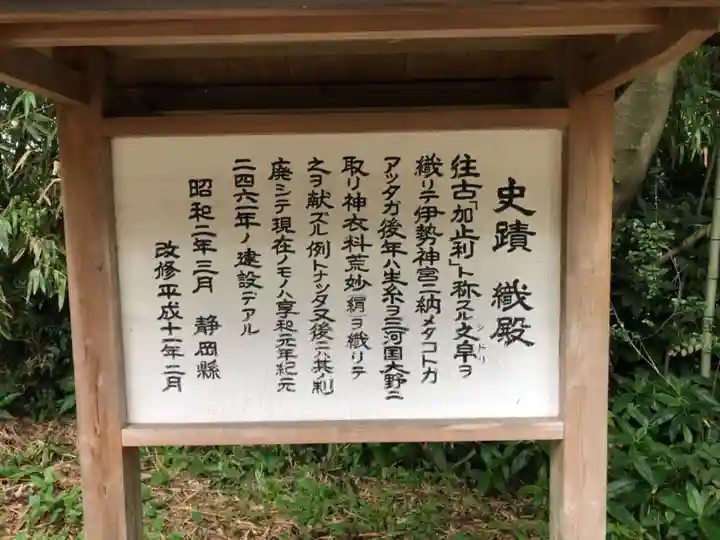 史蹟 織殿
往古「加止利」ト称スル文帛ヲ
シドリ
織リテ伊勢神宮ニ納メタコトガ
アッタガ後年ハ生糸ヲ三河国大野ニ
取リ神衣料荒妙（絹）ヲ織リテ
之ヲ献ズル例トナッタ又後ニハ其ノ制
廃シテ現在ノモノハ享和元年紀元
二四六一年ノ建設デアル
昭和二年三月 静岡縣
改修平成十一年二月